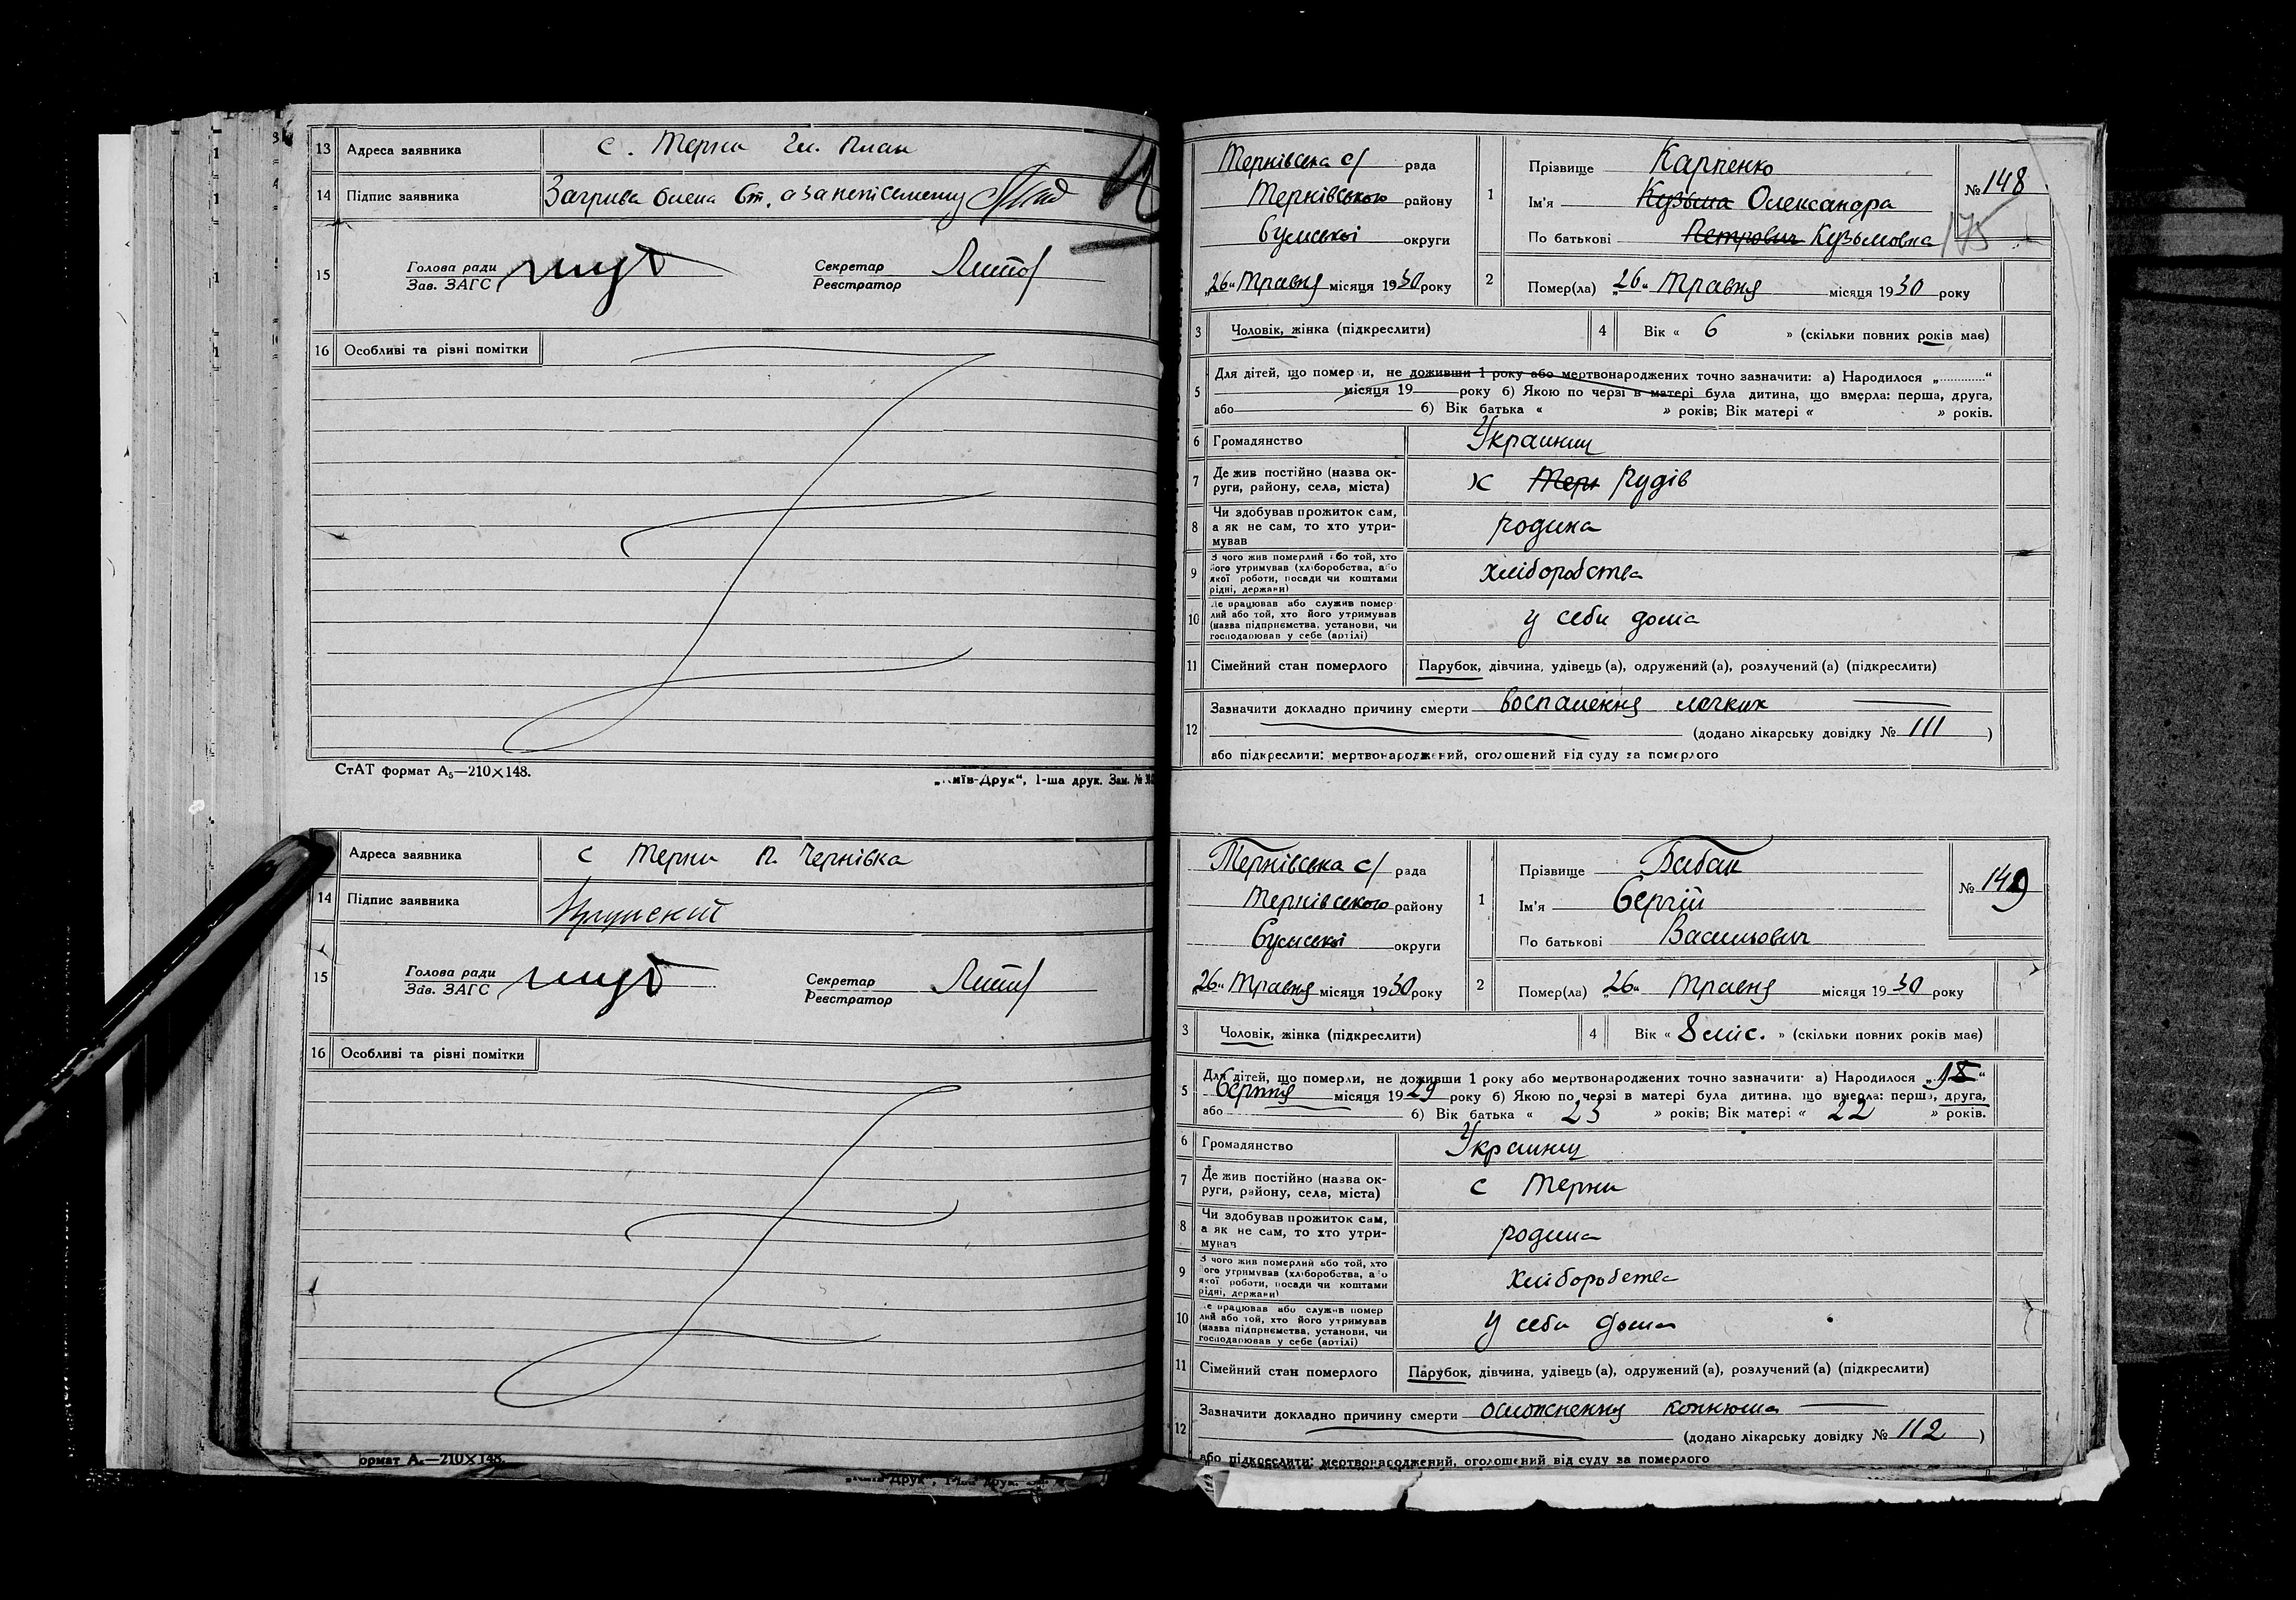 13 Адреса заявника с. Терни Гл. План
14 Підпис заявника Загрива Олена Ст. а за неписьменну
15 Голова ради Секретар
Зав. ЗАГС Реєстратор
16 Особливі та різні помітки
СтАТ формат А₅—210×148.
„Київ-Друк“, 1-ша друк. Зам. №
Адреса заявника с Терни п. Чернівка
14 Підпис заявника
15 Голова ради Секретар
Зав. ЗАГС Реєстратор
16 Особливі та різні помітки
ормат А₅—210×148.
Друк“, 1-ша друк.
Тернівська с/ рада
Тернівського району
Сумської округи
„26“ Травня місяця 1930 року
1 Прізвище Карпенко
Ім'я Кузьма Олександра
По батькові Петрович Кузьмовна
№ 148
175
2 Помер(ла) „26“ Травня місяця 1930 року
3 Чоловік, жінка (підкреслити) 4 Вік « 6 » (скільки повних років має)
5 Для дітей, що померли, не доживши 1 року або мертвонароджених точно зазначити: а) Народилося „.............“
місяця 19 року б) Якою по черзі в матері була дитина, що вмерла: перша, друга,
або б) Вік батька « » років; Вік матері « » років.
6 Громадянство Украинец
7 Де жив постійно (назва ок-
руги, району, села, міста) х Терн Рудів
8 Чи здобував прожиток сам,
а як не сам, то хто утри-
мував родина
9 З чого жив померлий або той, хто
його утримував (хліборобства, або
якої роботи, посади чи коштами
рідні, держави) хліборобства
10 Де працював або служив помер-
лий або той, хто його утримував
(назва підприємства, установи, чи
господарював у себе (артілі) у себи дома
11 Сімейний стан померлого Парубок, дівчина, удівець (а), одружений (а), розлучений (а) (підкреслити)
12 Зазначити докладно причину смерти воспалення легких
(додано лікарську довідку № 111 )
або підкреслити: мертвонароджений, оголошений від суду за померлого
Тернівська с/ рада
Тернівського району
Сумської округи
„26“ Травня місяця 1930 року
1 Прізвище Бабак
Ім'я Сергій
По батькові Васильович
№ 149
2 Помер(ла) „26“ Травня місяця 1930 року
3 Чоловік, жінка (підкреслити) 4 Вік « 8 міс. » (скільки повних років має)
5 Для дітей, що померли, не доживши 1 року або мертвонароджених точно зазначити: а) Народилося „18“
Серпня місяця 1929 року б) Якою по черзі в матері була дитина, що вмерла: перша, друга,
або б) Вік батька « 23 » років; Вік матері « 22 » років.
6 Громадянство Украинец
7 Де жив постійно (назва ок-
руги, району, села, міста) с Терни
8 Чи здобував прожиток сам,
а як не сам, то хто утри-
мував родина
9 З чого жив померлий або той, хто
його утримував (хліборобства, або
якої роботи, посади чи коштами
рідні, держави) хліборобства
10 Де працював або служив помер
лий або той, хто його утримував
(назва підприємства, установи, чи
господарював у себе (артілі) у себи дома
11 Сімейний стан померлого Парубок, дівчина, удівець (а), одружений (а), розлучений (а) (підкреслити)
12 Зазначити докладно причину смерти осложнення коклюша
(додано лікарську довідку № 112 )
або підкреслити: мертвонароджений, оголошений від суду за померлого